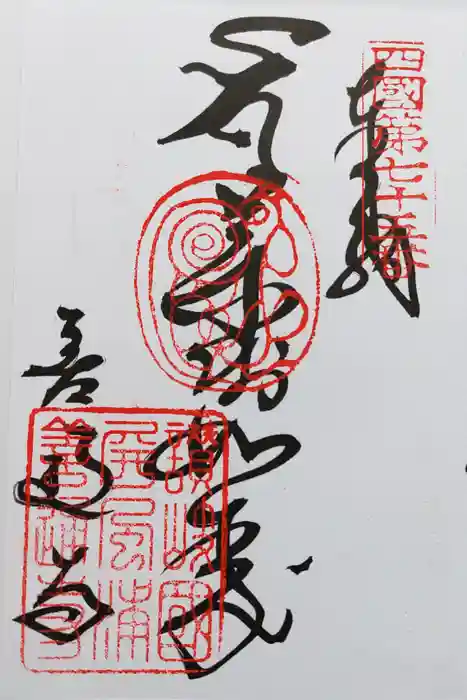 四國第七十五番
奉納
薬師如来
善通寺
讚岐國
屏風浦
善通寺